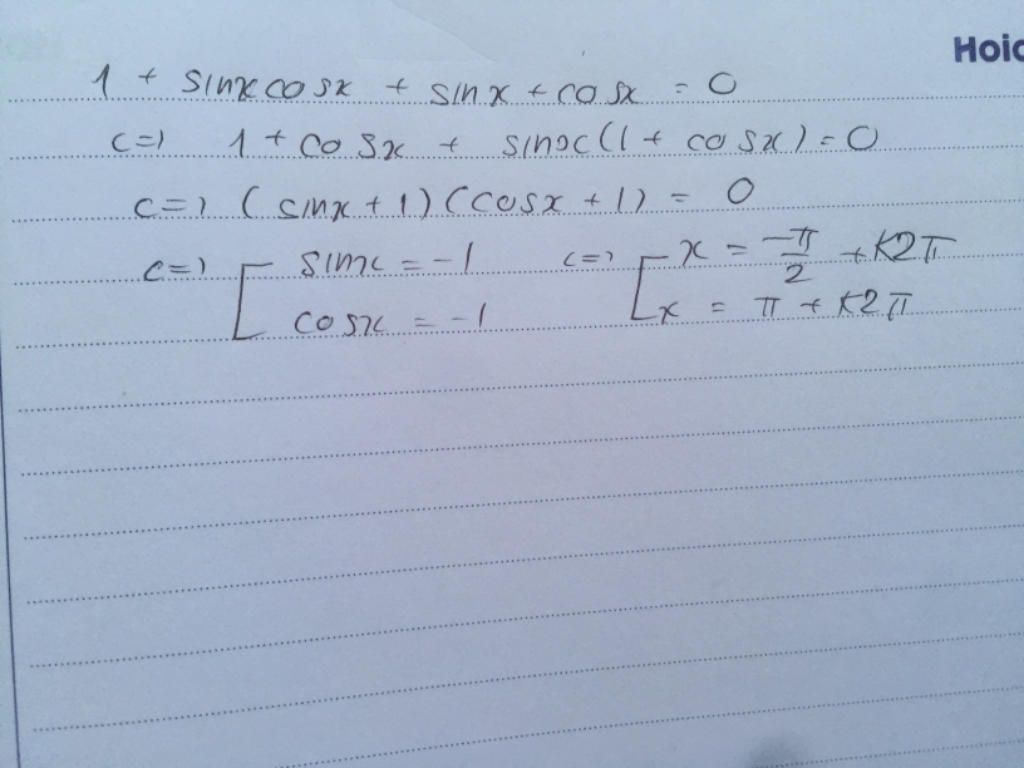 Hoic
1 + sinxcosx + sinx + cosx = 0
<=> 1 + cosx + sinx(1 + cosx) = 0
<=> (sinx + 1)(cosx + 1) = 0
<=> [ sinx = -1 <=> [ x = -π/2 + k2π
cosx = -1 x = π + k2π